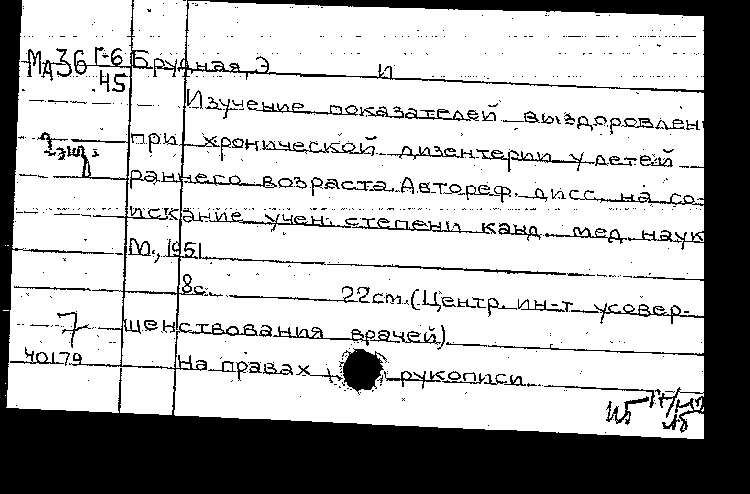 МА36 Г-6 Брудная, Э И
45
Изучение показателей выздоровлен
2 экз при хронической дизентерии у детей
раннего возраста. Автореф. дисс. на со-
искание учен. степени канд. мед. наук
М., 1951
8с. 22см. (Центр. ин-т усовер-
7 шенствования врачей)
40179 На правах рукописи